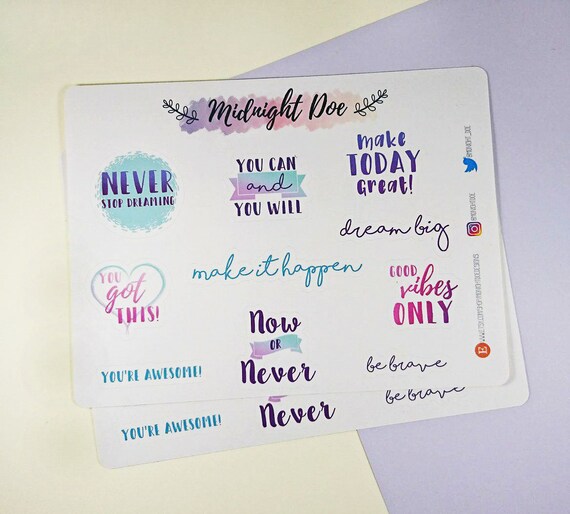 Midnight Doe
NEVER
STOP DREAMING
YOU CAN
and
YOU WILL
make
TODAY
Great!
dream big
make it happen
YOU
got
THIS!
GOOD
vibes
ONLY
Now
OR
Never
YOU'RE AWESOME!
be brave
YOU'RE AWESOME!
Never
be brave